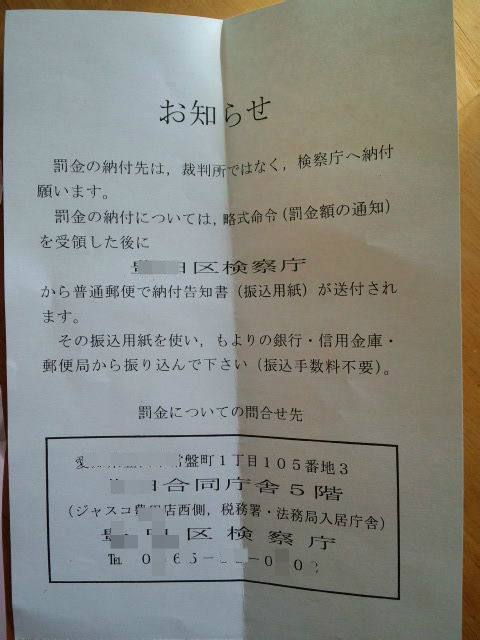 お知らせ
罰金の納付先は，裁判所ではなく，検察庁へ納付
願います。
罰金の納付については，略式命令（罰金額の通知）
を受領した後に
区検察庁
から普通郵便で納付告知書（振込用紙）が送付され
ます。
その振込用紙を使い，もよりの銀行・信用金庫・
郵便局から振り込んで下さい（振込手数料不要）。
罰金についての問合せ先
常盤町１丁目１０５番地３
合同庁舎５階
（ジャスコ豊田店西側，税務署・法務局入居庁舎）
区検察庁
℡ ０